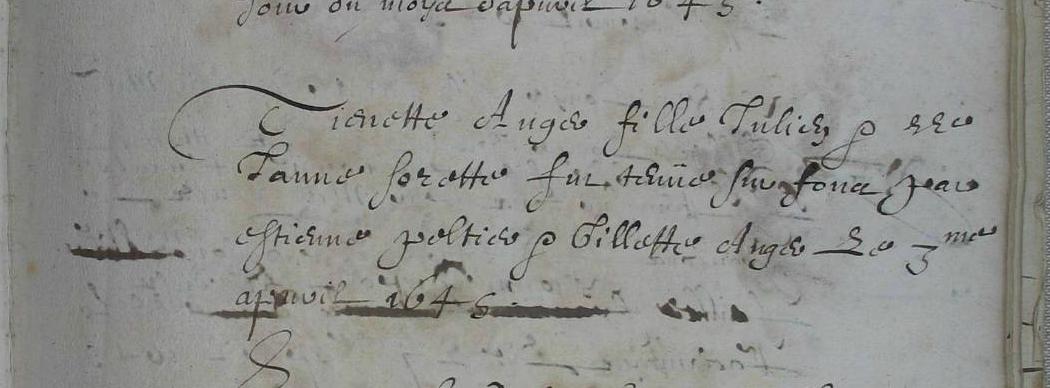 Jour du moys d'apvril 1645.
Tienette Anger fille Julien et de
Janne sorette fut tenüe sur fons par
estienne peltier et Gillette Anger Le 3me
apvril 1645.